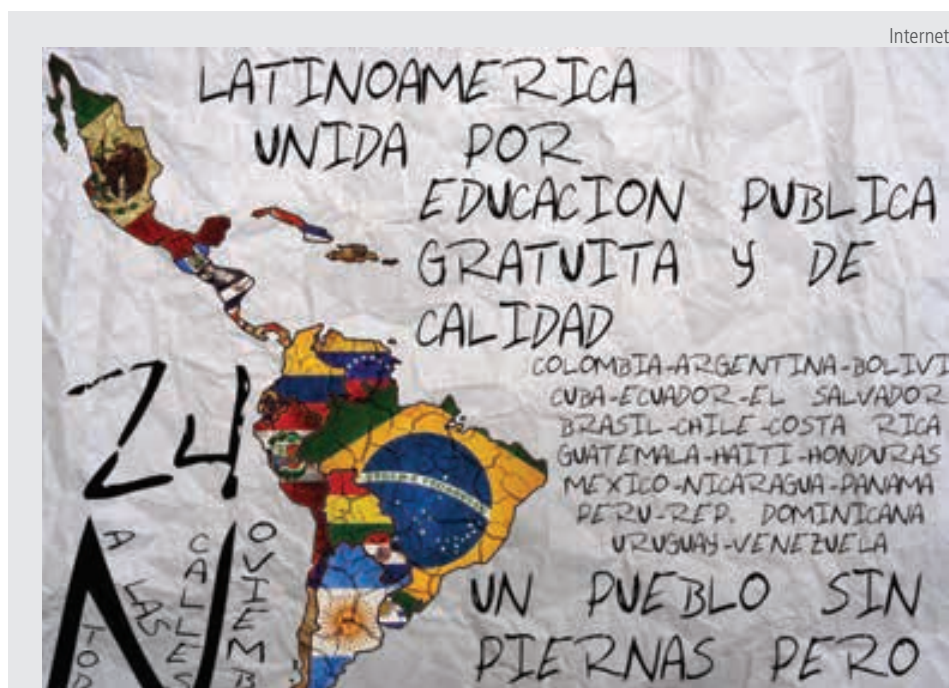 Internet
LATINOAMERICA
UNIDA POR
EDUCACION PUBLICA
GRATUITA Y DE
CALIDAD
COLOMBIA-ARGENTINA-BOLIVI
CUBA-ECUADOR-EL SALVADOR
BRASIL-CHILE-COSTA RICA
GUATEMALA-HAITI-HONDURAS
MEXICO-NICARAGUA-PANAMA
PERU-REP. DOMINICANA
URUGUAY-VENEZUELA
24
N
OVIEMB
A LAS
CALLES
TOD
UN PUEBLO SIN
PIERNAS PERO